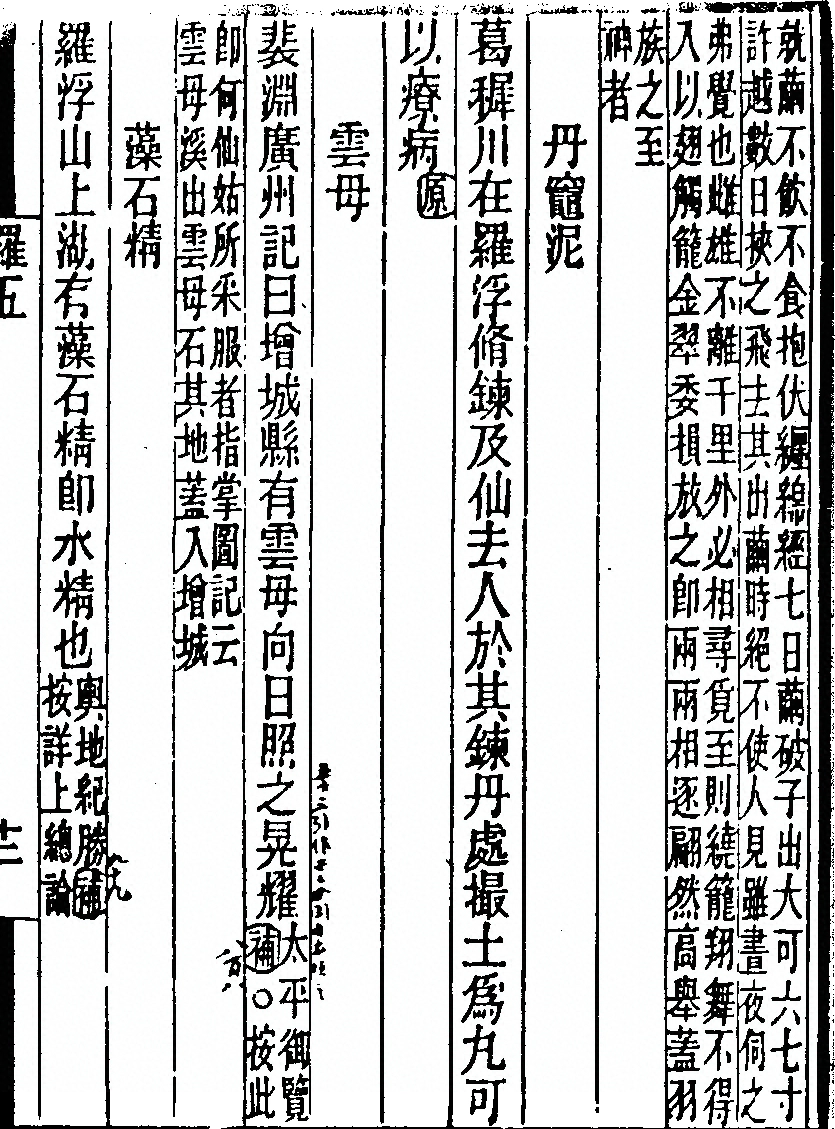 就繭不飲不食抱伏纏綿經七日繭破子出大可六七寸
許越數日挾之飛去其出繭時絕不使人見雖晝夜伺之
弗覺也雌雄不離千里外必相尋覓至則繞籠翔舞不得
入以翅觸籠金翠委損放之卽兩兩相逐翩然高舉蓋羽
族之至
神者
丹竈泥
葛穉川在羅浮脩鍊及仙去人於其鍊丹處撮土爲丸可
以療病原
雲母
裴淵廣州記曰增城縣有雲母向日照之晃耀太平御覽
補○按此
卽何仙姑所采服者指掌圖記云
雲母溪出雲母石其地蓋入增城
藻石精
羅浮山上湖有藻石精卽水精也輿地紀勝補
按詳上總論
羅五